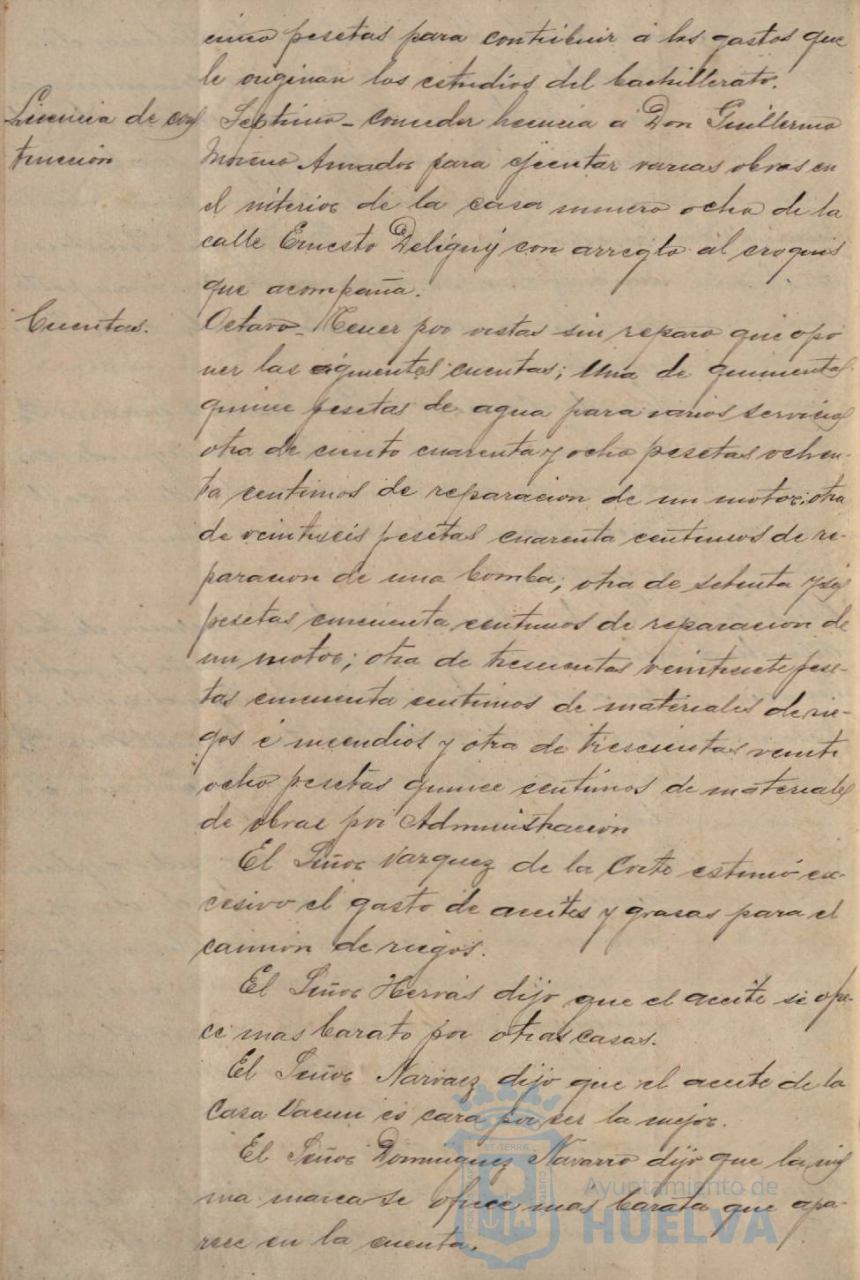 cinco pesetas para contribuir á los gastos que
le originan los estudios del bachillerato.
Licencia de cons
trucción
Septimo - conceder licencia a Don Guillermo
Moreno Amador para ejecutar varias obras en
el interior de la casa numero ocho de la
calle Ernesto Deligny con arreglo al croquis
que acompaña.
Cuentas.
Octavo - Tener por vistas sin reparo que opo
ner las siguientes cuentas; Una de quinientas
quince pesetas de agua para varios servicios
otra de ciento cuarenta y ocho pesetas ochen-
ta centimos de reparacion de un motor; otra
de veintiseis pesetas cuarenta centimos de re-
paracion de una bomba; otra de setenta y seis
pesetas cincuenta centimos de reparacion de
un motor; otra de trescientas veintisiete pese-
tas cincuenta centimos de materiales de rie-
gos é incendios y otra de trescientas veinti
ocho pesetas quince centimos de materiales
de obras por Administración
El Señor Vazquez de la Corte estimó ex-
cesivo el gasto de aceites y grasas para el
camión de riegos.
El Señor Hervás dijo que el aceite se ofre-
ce mas barato por otras casas.
El Señor Narvaez dijo que el aceite de la
Casa Vacun es cara por ser la mejor.
El Señor Dominguez Navarro dijo que la mis
ma marca se ofrece mas barata que apa-
rece en la cuenta.
Ayuntamiento de
HUELVA